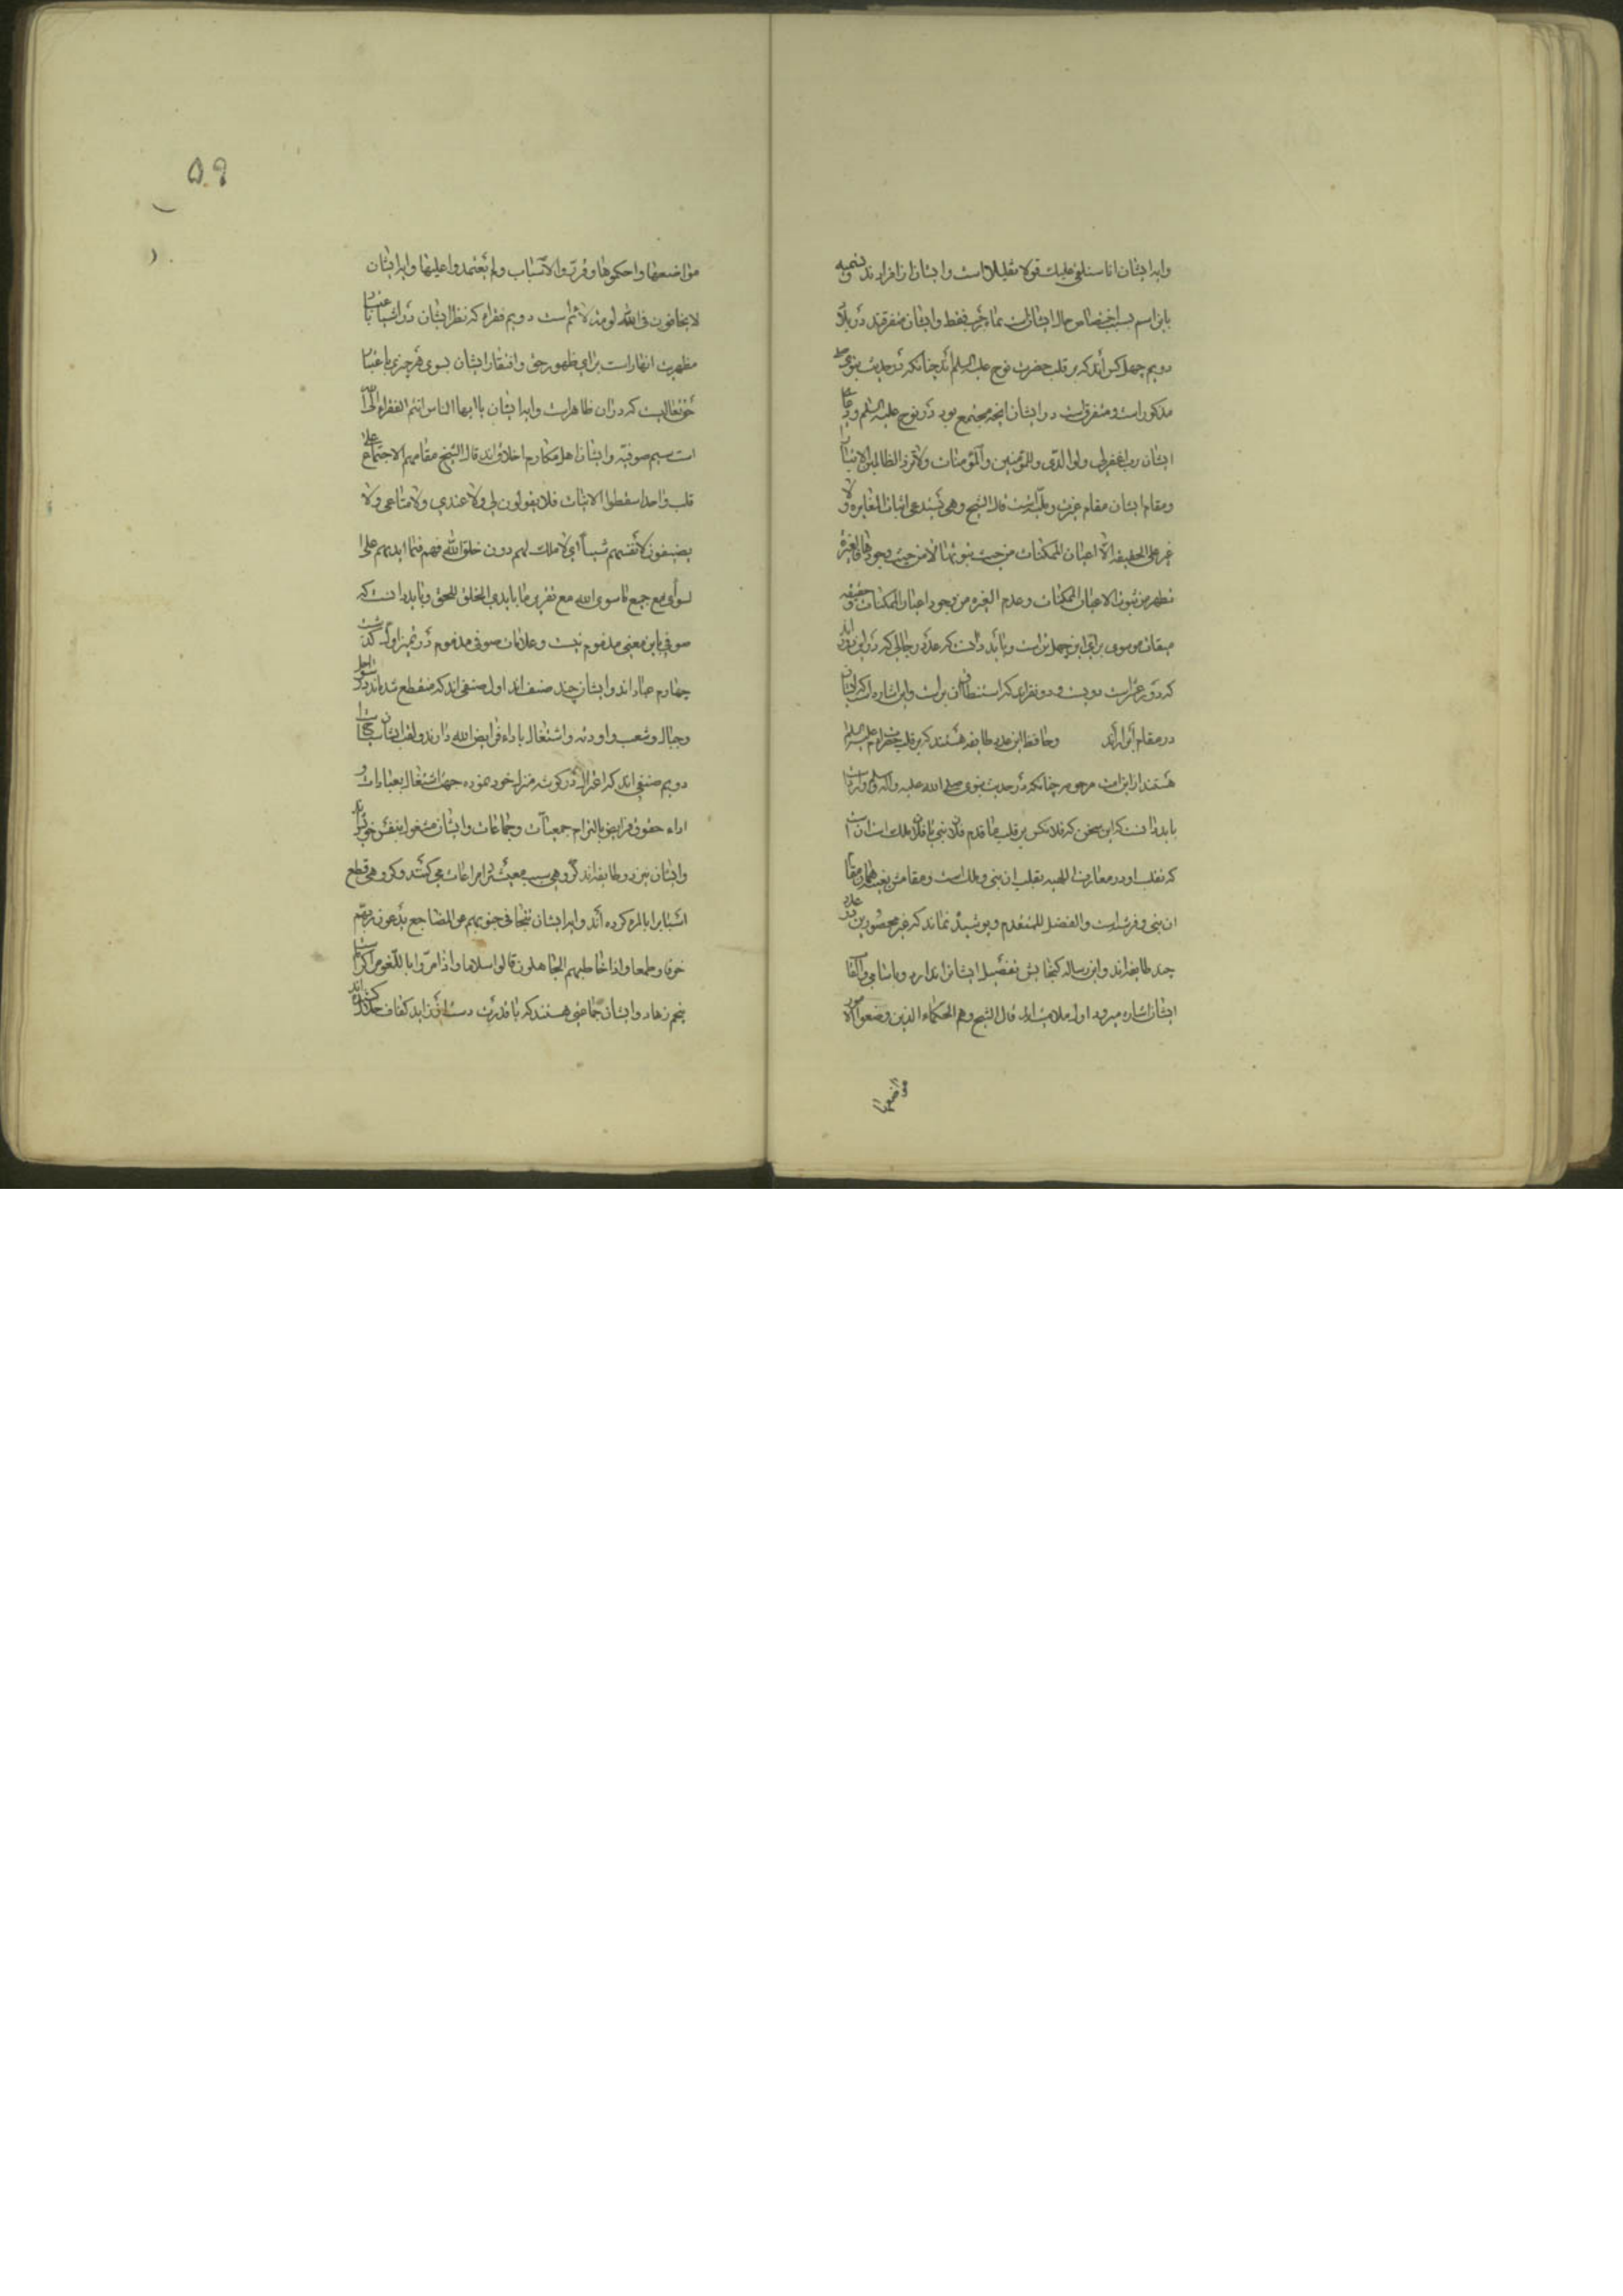 وایه ایشان انا سنلقی علیک قولا ثقیلا است و ایشان از افرادند و تسمیه
باین اسم بسبب اختصاص حال ایشانست بماء حرب فقط و ایشان متفرقند در بلاد
دویم چهل کس‌اند که بر قلب حضرت نوح علیه السلم‌اند چنانکه در حدیث نبوی ص
مذکور است و متفرقست در ایشان انچه مجتمع بود در نوح علیه السلم و دعای
ایشان رب اغفر لی ولوالدی وللمؤمنین والمؤمنات ولا تزد الظالمین الا تبارا
و مقام ایشان مقام غیرت دینیّه است قال الشیخ وهی تستدعی اثبات المغایرة ولا
غیر علی الحقیقه الا اعیان الممکنات من حیث ثبوتها لا من حیث وجودها فالغیرة
تظهر من ثبوت الاعیان الممکنات وعدم الغیرة من وجود اعیان الممکنات حقیقه و
میقات موسوی برای این چهل تن است و باید دانست که عدد رجالی که در این دوره‌اند
که دوره عزلت دویست و دو نفراند که
در مقام ابراراند وحافظ این عدد طایفه هستند که بر قلب حضرت ادم علیه السلم
هستند از این امت مرحومه چنانکه در حدیث نبوی صلی الله علیه وآله وسلم وارد است
باید دانست که این سخن که فلانکس بر قلب یا قدم فلان نبی یا فلان ملک است انست
که تقلب او در معارف الهیه بقلب ان نبی و ملک است و مقامش بعینه همان مقام
ان نبی و فرشته است والفضل للمتقدم و پوشیده نماند که غیر محصورین در عدد
چند طایفه‌اند و این رساله گنجایش تفصیل ایشانرا ندارد و باسامی و القاب
ایشان اشاره میرود اول ملامیه‌اند قال الشیخ وهم الحکماء الذین وضعوا الامور
مواضعها
مواضعها واحکموها وقرروا الاسباب ولم یعتمدوا علیها وایه ایشان
لا یخافون فی الله لومة لائم است دویم فقراء که نظر ایشان در اشیا باعتبار
مظهریت انهاراست برای ظهور حق و افتقار ایشان بسوی هر چیزی باعتبار
حق تعالیست که در ان ظاهر است وایه ایشان یا ایها الناس انتم الفقراء الی الله
است سیم صوفیّه و ایشان اهل مکارم اخلاق‌اند قال الشیخ مقامهم الاجتماع علی
قلب واحد اسقطوا الایات فلا یقولون لی ولا عندی ولا متاعی ولا
یضیفون لانفسهم شیئاً ای لا ملک لهم دون خلق الله فهم فیما ایدیهم علی ا
لسواء مع جمیع ما سوی الله مع تقریر ما بایدی الخلق للخلق و باید دانست که
صوفی باین معنی مذموم نیست و علامات صوفی مذموم در تمیز اول گذشت
چهارم عبّاداند و ایشان چند صنف‌اند اول صنفی‌اند که منقطع شده‌اند در سواحل
وجبال وشعب واودیه واشتغال باداء فرایض الله دارند
دویم صنفی‌اند که اعتزال در گوشه منزل خود نموده جهة اشتغال بعبادات و
اداء حقوق فرایض بالتزام جمعیات وجماعات و ایشان مشغول بنفس خویش‌اند
و ایشان نیز دو طایفه‌اند گروهی سبب معیشترا مراعات می‌کنند و گروهی قطع
اسبابرا بالمره کرده‌اند وایه ایشان تتجافی جنوبهم عن المضاجع یدعون ربهم
خوفا وطمعا واذا خاطبهم الجاهلون قالوا سلاما واذا مروا باللغو مروا کراما است
پنجم زهاد و ایشان جماعتی هستند که با قدرت دست از زاید کفاف حلال کشیده‌اند